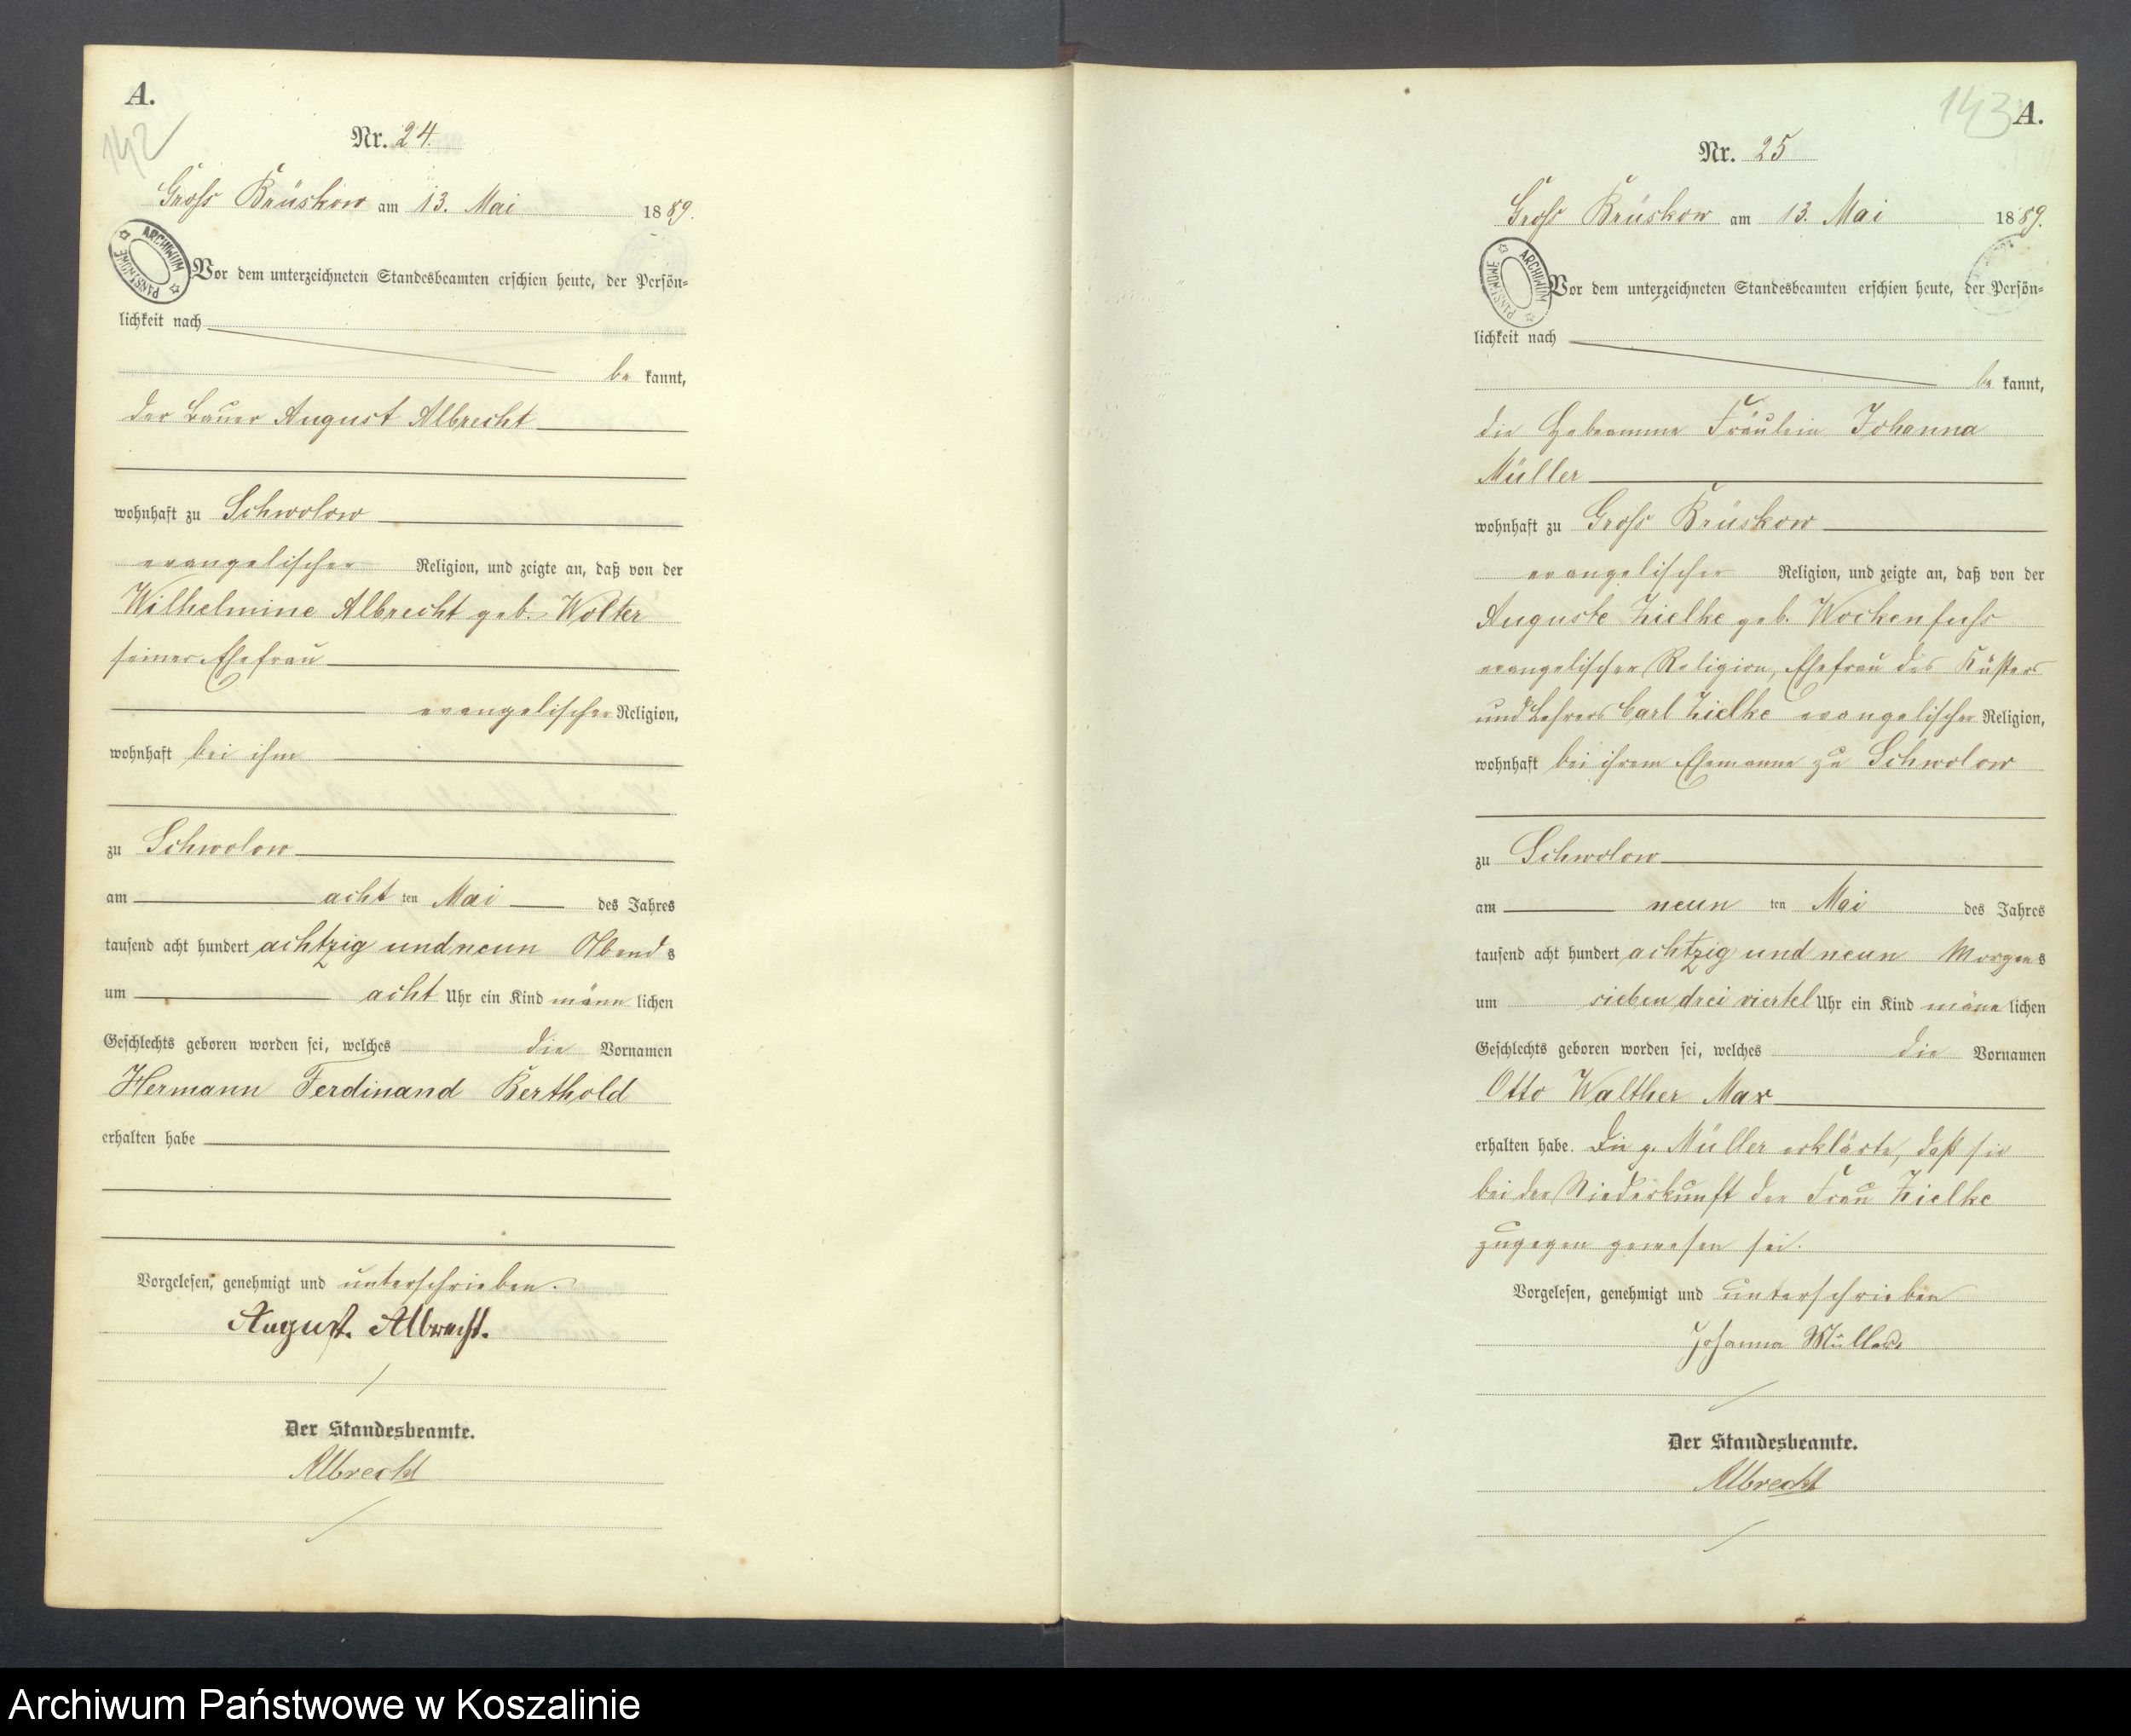 A.
142
Nr. 24.
Gross Brüskow am 13. Mai 1889.
ARCHIWUM PAŃSTWOWE
Vor dem unterzeichneten Standesbeamten erschien heute, der Persön=
lichkeit nach
be kannt,
der Bauer August Albrecht
wohnhaft zu Schwolow
evangelischer Religion, und zeigte an, daß von der
Wilhelmine Albrecht geb. Wolter
seiner Ehefrau
evangelischer Religion,
wohnhaft bei ihm
zu Schwolow
am acht ten Mai des Jahres
tausend acht hundert achtzig und neun Abends
um acht Uhr ein Kind männlichen
Geschlechts geboren worden sei, welches die Vornamen
Hermann Ferdinand Berthold
erhalten habe
Vorgelesen, genehmigt und unterschrieben.
August. Albrecht.
Der Standesbeamte.
Albrecht
143 A.
Nr. 25
Gross Brüskow am 13. Mai 1889.
ARCHIWUM PAŃSTWOWE
Vor dem unterzeichneten Standesbeamten erschien heute, der Persön=
lichkeit nach
be kannt,
die Hebeamme Fräulein Johanna
Müller
wohnhaft zu Gross Brüskow
evangelischer Religion, und zeigte an, daß von der
Auguste Zielke geb. Wockenfuss
evangelischer Religion, Ehefrau des Küsters
und Lehrers Carl Zielke evangelischer Religion,
wohnhaft bei ihrem Ehemanne zu Schwolow
zu Schwolow
am neun ten Mai des Jahres
tausend acht hundert achtzig und neun Morgens
um sieben drei viertel Uhr ein Kind männlichen
Geschlechts geboren worden sei, welches die Vornamen
Otto Walther Max
erhalten habe. Die p. Müller erklärte, daß sie
bei der Niederkunft der Frau Zielke
zugegen gewesen sei.
Vorgelesen, genehmigt und unterschrieben
Johanna Müller.
Der Standesbeamte.
Albrecht
Archiwum Państwowe w Koszalinie